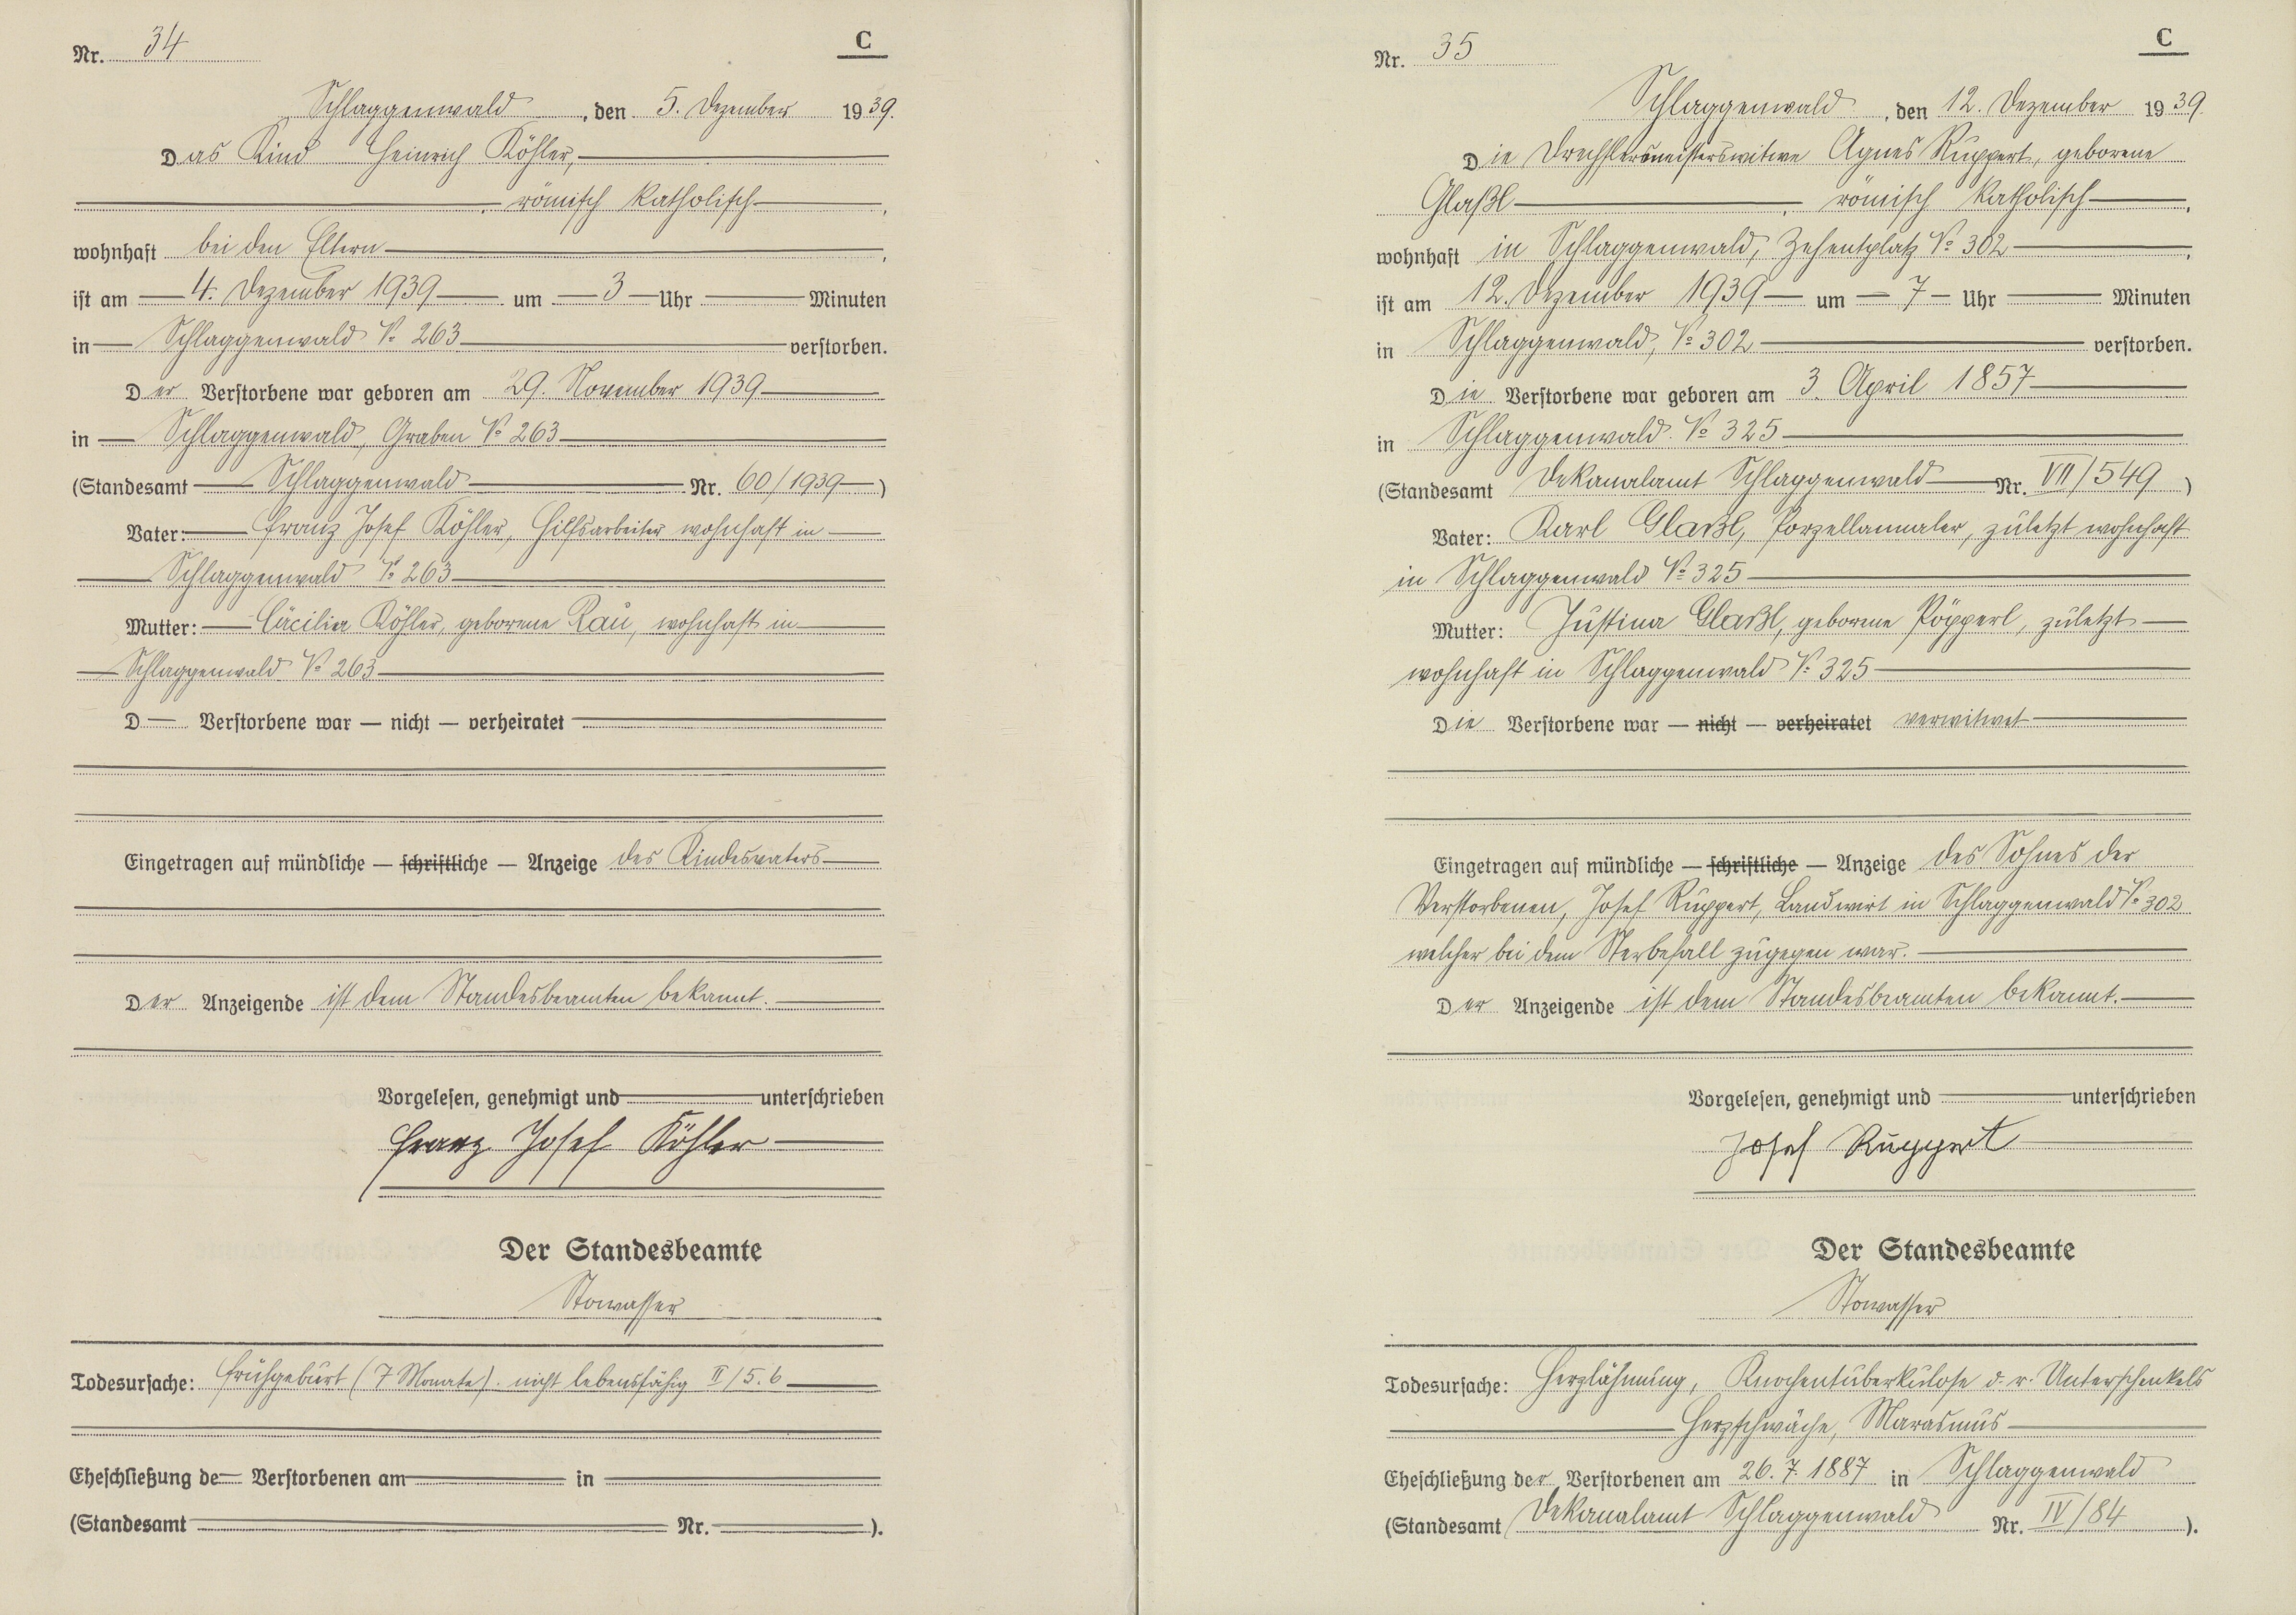 Nr. 34
C
Schlaggenwald, den 5. Dezember 1939.
Das Kind Heinrich Köhler,
römisch katholisch,
wohnhaft bei den Eltern,
ist am 4. Dezember 1939 um 3 Uhr Minuten
in Schlaggenwald No 263 verstorben.
Der Verstorbene war geboren am 29. November 1939
in Schlaggenwald, Graben No 263
(Standesamt Schlaggenwald Nr. 60/1939)
Vater: Franz Josef Köhler, Hilfsarbeiter wohnhaft in
Schlaggenwald No 263
Mutter: Cäcilia Köhler, geborene Rau, wohnhaft in
Schlaggenwald No 263
D— Verstorbene war — nicht — verheiratet
Eingetragen auf mündliche — schriftliche — Anzeige des Kindesvaters
Der Anzeigende ist dem Standesbeamten bekannt.
Vorgelesen, genehmigt und unterschrieben
Franz Josef Köhler
Der Standesbeamte
Stowasser
Todesursache: Frühgeburt (7 Monate). nicht lebensfähig II/5.6
Eheschließung de— Verstorbenen am in
(Standesamt Nr. ).
Nr. 35
C
Schlaggenwald, den 12. Dezember 1939.
Die Drechslersmeisterswitwe Agnes Ruppert, geborene
Glaßl, römisch katholisch,
wohnhaft in Schlaggenwald, Zehentplatz No 302,
ist am 12. Dezember 1939 um 7 Uhr Minuten
in Schlaggenwald, No 302 verstorben.
Die Verstorbene war geboren am 3. April 1857
in Schlaggenwald No 325
(Standesamt Dekanalamt Schlaggenwald Nr. VII/549)
Vater: Karl Glaßl, Porzellanmaler, zuletzt wohnhaft
in Schlaggenwald No 325
Mutter: Justina Glaßl, geborene Pöpperl, zuletzt
wohnhaft in Schlaggenwald No 325
Die Verstorbene war — nicht — verheiratet verwitwet
Eingetragen auf mündliche — schriftliche — Anzeige des Sohnes der
Verstorbenen, Josef Ruppert, Landwirt in Schlaggenwald No 302
welcher bei dem Sterbefall zugegen war.
Der Anzeigende ist dem Standesbeamten bekannt.
Vorgelesen, genehmigt und unterschrieben
Josef Ruppert
Der Standesbeamte
Stowasser
Todesursache: Herzlähmung, Knochentuberkulose d. r. Unterschenkels
Herzschwäche, Marasmus
Eheschließung der Verstorbenen am 26. 7. 1887 in Schlaggenwald
(Standesamt Dekanalamt Schlaggenwald Nr. IV/84 ).